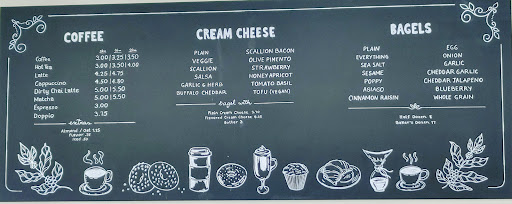 COFFEE
12oz 16oz 20oz
Coffee 3.00 | 3.25 | 3.50
Hot Tea 3.00 | 3.50 | 4.00
Latte 4.25 | 4.75
Cappuccino 4.50 | 4.80
Dirty Chai Latte 5.00 | 5.50
Matcha 5.00 | 5.50
Espresso 3.00
Doppio 3.75
extras
Almond / Oat 1.25
Flavor .50
Iced .50
CREAM CHEESE
PLAIN
VEGGIE
SCALLION
SALSA
GARLIC & HERB
BUFFALO CHEDDAR
SCALLION BACON
OLIVE PIMENTO
STRAWBERRY
HONEY APRICOT
TOMATO BASIL
TOFU (VEGAN)
bagel with
Plain Cream Cheese
Flavored Cream Cheese
Butter
BAGELS
PLAIN
EVERYTHING
SEA SALT
SESAME
POPPY
ASIAGO
CINNAMON RAISIN
EGG
ONION
GARLIC
CHEDDAR GARLIC
CHEDDAR JALAPENO
BLUEBERRY
WHOLE GRAIN
Half Dozen
Baker's Dozen